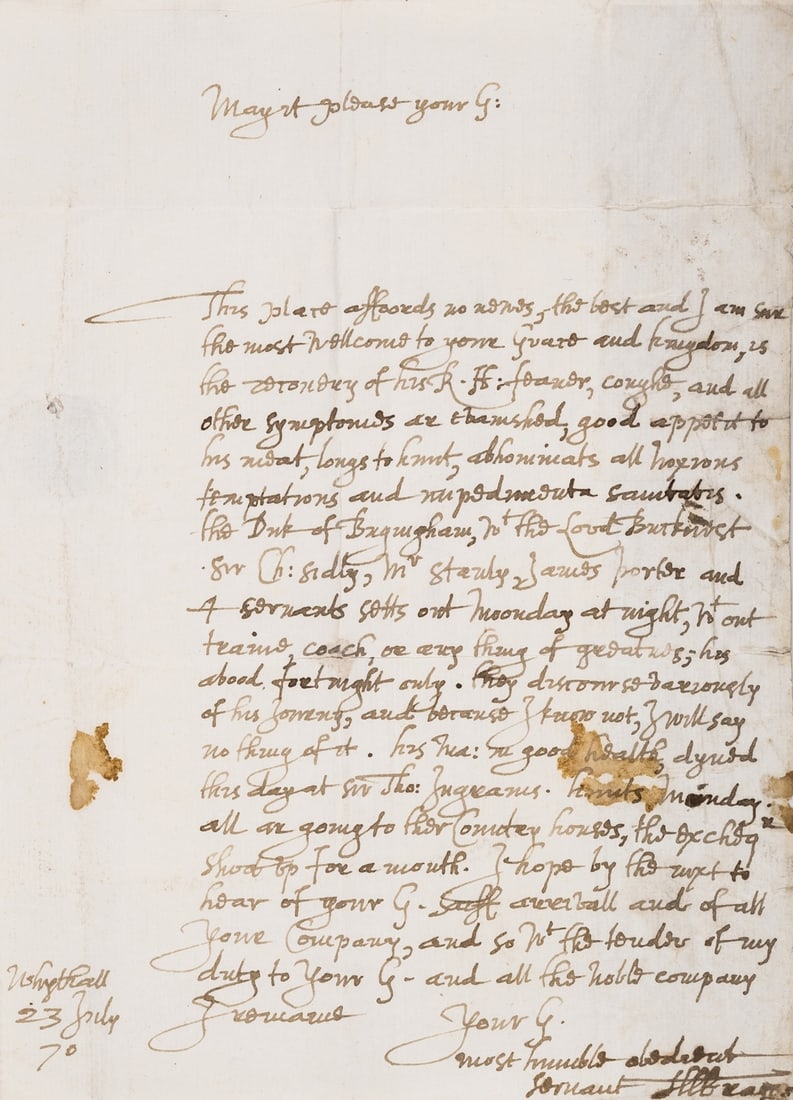 May it please your G:
This place affoords no newes, the best and I am sur
the most wellcome to your Grace and kingdom, is
the recovery of his R. H: feaver, coughe, and all
other symptomes ar vanished, good appetit to
his meat, longs to hunt, abhominats all noxious
temptations and impedimenta sanitatis.
the Duk of Buquigham, wt the Lord Buckhrst
Sir Ch: Sidly, Mr Stanly, James Porter and
4 servants setts out Moonday at night, wt out
traine, coach, or any thing of greatnes; his
abood fortnight only. they discourse variously
of his Jorney, and because I know not, I will say
nothing of it. his Ma: in good health, dyned
this day at Sir Tho: Ingrams. hunts Munday.
all ar going to ther Countey houses, the excheqr
shoot up for a month. I hope by the nixt to
hear of your G. saff arrivall and of all
your Company, and so wt the tender of my
duty to your G. and all the noble company
I remaine
Your G.
most humble obedient
servant
Whythall
23 July
70